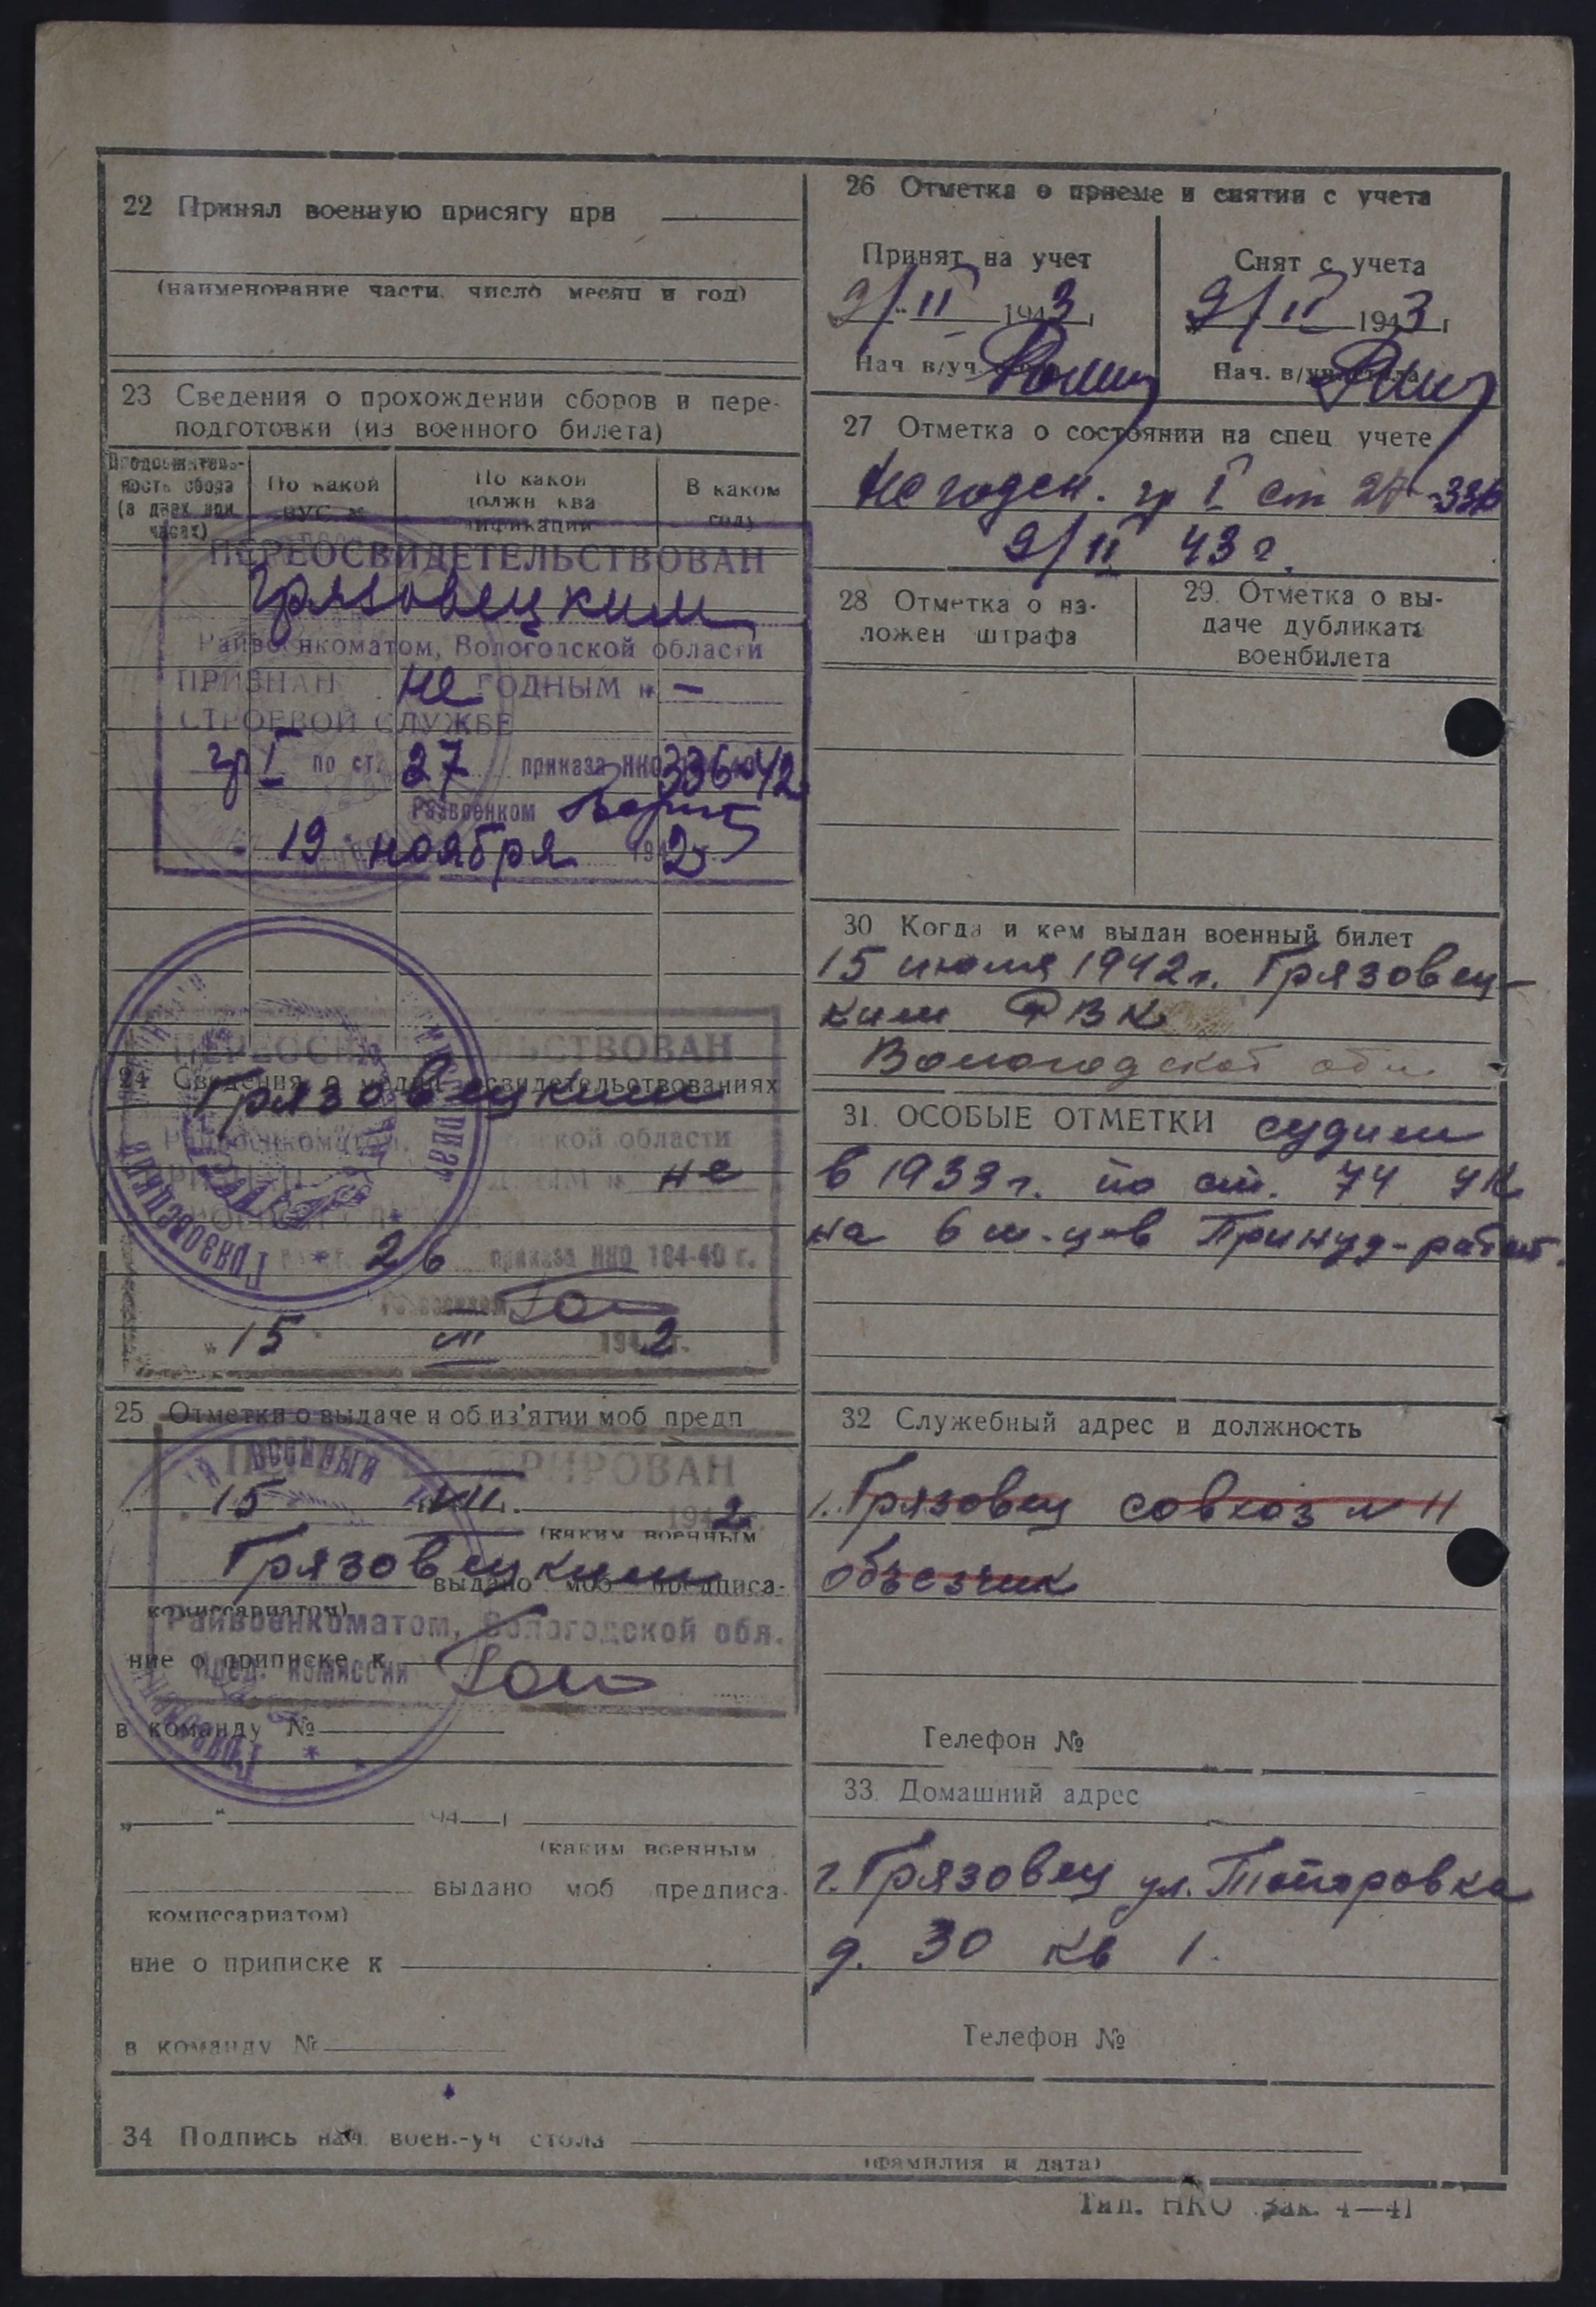 22 Принял военную присягу при
(наименование части, число месяц и год)
23 Сведения о прохождении сборов и пере-
подготовки (из военного билета)
Продолжитель-
ность сбора
(в днях или
часах)
По какой
ВУС №
По какой
должн ква
лификации
В каком
году
ПЕРЕОСВИДЕТЕЛЬСТВОВАН
Грязовецким
Райвоенкоматом, Вологодской области
ПРИЗНАН не ГОДНЫМ к —
СТРОЕВОЙ СЛУЖБЕ
гр I по ст. 27 приказа НКО 336-42
Райвоенком
19 ноября 1942 г.
ПЕРЕОСВИДЕТЕЛЬСТВОВАН
24 Сведения о медпереосвидетельствованиях
Грязовецким
Райвоенкоматом, Вологодской области
не
26 приказа НКО 184-40 г.
Райвоенком
"15" 1942 г.
25 Отметки о выдаче и об из'ятии моб предп
15 VII. 1942 г.
(каким военным
Грязовецким
выдано моб предписа-
комиссариатом)
Райвоенкоматом, Вологодской обл.
ние о приписке к
Пред. комиссии
в команду №
„ " 194 г
(каким военным
выдано моб предписа-
комиссариатом)
ние о приписке к
в команду №
26 Отметка о приеме и снятии с учета
Принят на учет
9/II 1943 г
Нач в/уч.
Снят с учета
9/II 1943 г
Нач. в/уч. стола
27 Отметка о состоянии на спец учете
Не годен. гр I ст 27-336
9/II 43 г.
28 Отметка о на-
ложен штрафа
29. Отметка о вы-
даче дубликата
военбилета
30 Когда и кем выдан военный билет
15 июля 1942 г. Грязовец-
ким РВК
Вологодской обл.
31. ОСОБЫЕ ОТМЕТКИ судим
в 1933 г. по ст. 74 УК
на 6 м-цев Принуд-работ.
32 Служебный адрес и должность
г. Грязовец совхоз № 11
объезчик
Телефон №
33. Домашний адрес
г. Грязовец ул. Топоровка
д. 30 кв 1.
Телефон №
34 Подпись нач. воен.-уч стола
(фамилия и дата)
Тип. НКО Зак. 4—41